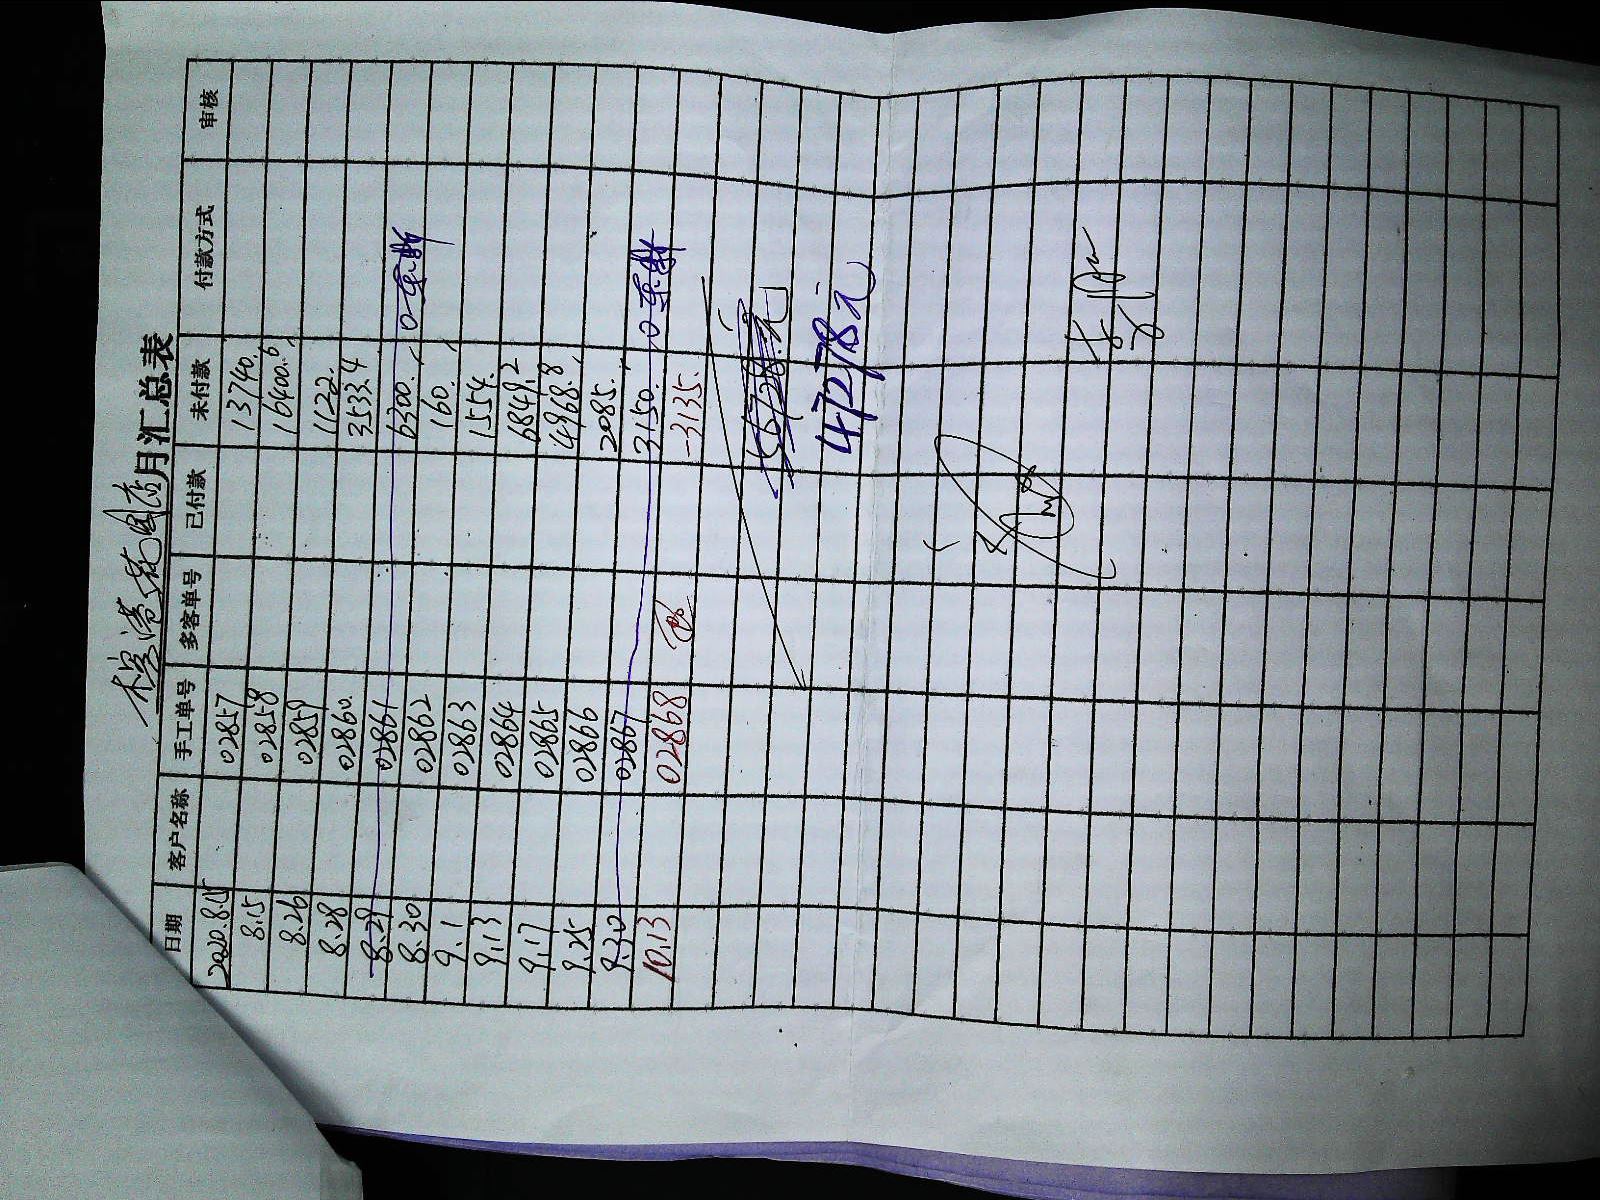 月汇总表
日期 客户名称 手工单号 多客单号 已付款 未付款 付款方式 审核
2020.8.15 02857 13740.
8.15 02858 16400.6
8.26 02859 1122.
8.28 02860. 3533.4
8.29 02861 6300.
8.30 02862 160.
9.1 02863 1554.
9.13 02864 6849.2
9.17 02865 4968.8
9.25 02866 2085.
9.30 02867 3150.
10.13 02868 -3135.
47278元